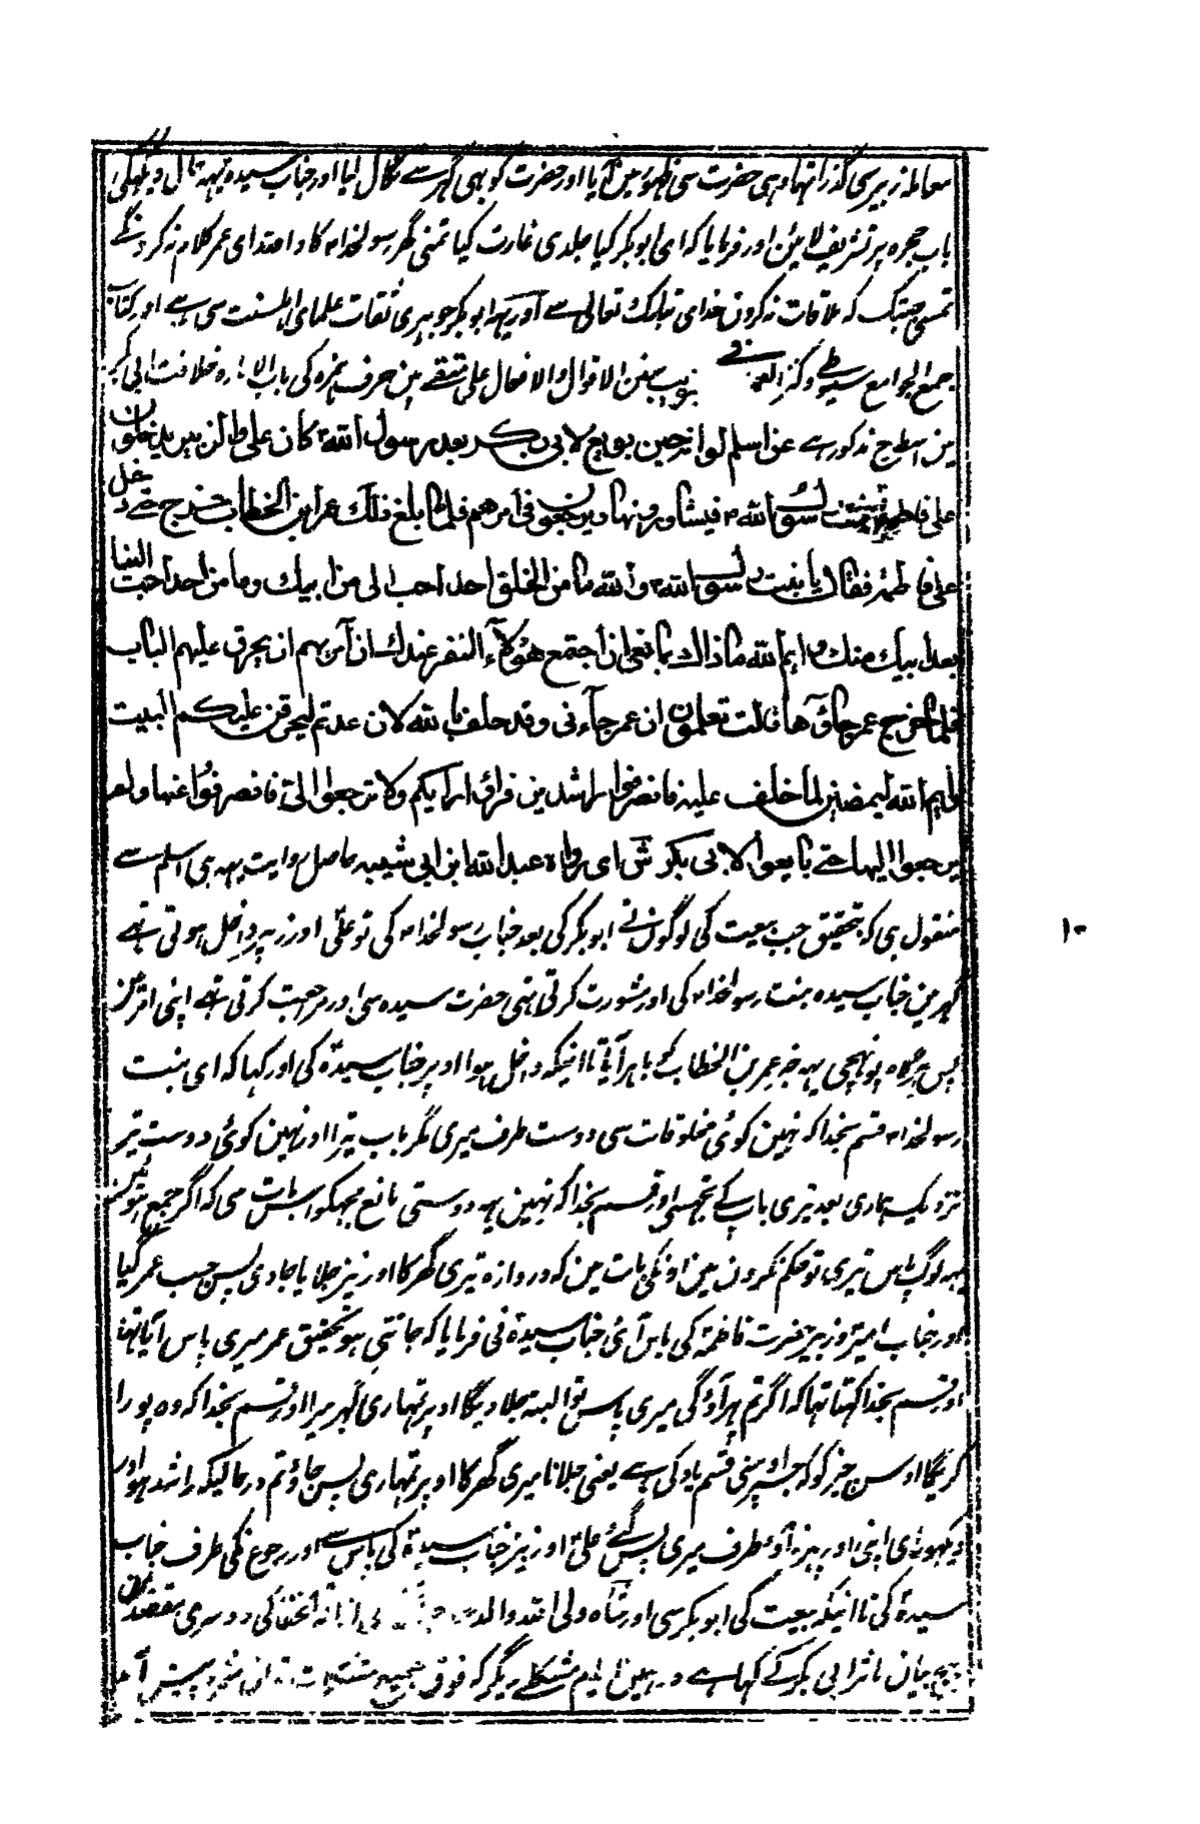 معاملہ زبیر سی گذرا تہا وہی حضرت سی ظہور مین آیا اور حضرت کو بہی گہر سے نکال لیا اور جناب سیدہ یہہ حال دیکہکر
باب حجرہ پر تشریف لائین اور فرمایا کہ ای ابو بکر کیا جلدی غارت کیا تمنی گہر رسولخدا کا واللہ ای عمر کلام نہ کرونگی
تمسی جبتک کہ ملاقات نہ کرون خدای تبارک تعالی سے اور یہہ ابو بکر جوہری ثقات علمای اہلسنت سی ہے اور کتاب
جمع الجوامع سیوطی و کنز العمال فی تبویب سنن الاقوال والافعال علی متقے مین حرف ہمزہ کی باب الامارہ خلافت ابی بکر
مین اسطرح مذکور ہے عن اسلم انہ حین بویع لابی بکر بعد رسول اللہ کان علی والزبیر یدخلون
علی فاطمۃ بنت رسول اللہ فیشاورونہا ویرجعون فی امرہم فلما بلغ ذلک عمر ابن الخطاب خرج حتے دخل
علی فاطمۃ فقال یا بنت رسول اللہ واللہ ما من الخلق احد احب الی من ابیک وما من احد احب الینا
بعد ابیک منک وایم اللہ ما ذاک بمانعی ان اجتمع ہؤلاء النفر عندک ان آمر بہم ان یحرق علیہم الباب
فلما خرج عمر جاؤہا قالت تعلمون ان عمر جاءنی وقد حلف باللہ لان عدتم لیحرقن علیکم البیت
وایم اللہ لیمضین لما حلف علیہ فانصرفوا راشدین فروا رایکم ولا ترجعوا الی فانصرفوا عنہا ولم
یرجعوا الیہا حتے بایعوا لابی بکر ش ای رواہ عبد اللہ ابن ابی شیبہ حاصل روایت یہہ ہی اسلم سے
منقول ہی کہ بتحقیق جب بیعت کی لوگون نے ابو بکر کی بعد جناب رسولخدا کی تو علی اور زبیر داخل ہوتی تہے
گہر مین جناب سیدہ بنت رسولخدا کی اور مشورت کرتی تہی حضرت سیدہ سی اور مرجعت کرتی تہے اپنی امر مین
پس ہرگاہ پونہچی یہہ خبر عمر بن الخطاب کو باہر آیا تا اینکہ داخل ہوا اوپر جناب سیدہ کی اور کہا کہ ای بنت
رسولخدا قسم بخدا کہ نہین کوئی مخلوقات سی دوست طرف میری مگر باب تیرا اور نہین کوئی دوست تر
نزدیک ہماری بعد تیری باپ کے تجہسی اور قسم بخدا کہ نہین یہہ دوستی مانع مجہکو اس بات سی کہ اگر جمع ہووین
یہہ لوگ پاس تیری تو حکم نکرون مین اونکی بات مین کہ دروازہ تیری گہر کا اور نیز جلایا جاوی پس جب عمر گیا
اور جناب امیر و زبیر حضرت فاطمہ کی پاس آئی جناب سیدہ نی فرمایا کہ جانتی ہو بتحقیق عمر میری پاس آیا تہا
اور قسم بخدا کہتا تہا کہ اگر تم پہر آؤگی میری پاس تو البتہ جلا دیگا اوپر تمہاری گہر میرا اور قسم بخدا کہ وہ پورا
کریگا اوس چیز کو کہ جسپر اوسنی قسم یاد کی ہے یعنی جلانا میری گہر کا اوپر تمہاری پس جاؤ تم درحالیکہ راشد ہو اور
دیکہو رای اپنی اور پہر نہ آؤ طرف میری پس گئے علی اور زبیر جناب سیدہ کی پاس سے اور رجوع نکی طرف جناب
سیدہ کی تا اینکہ بیعت کی ابو بکر سی اور شاہ ولی اللہ والد ازالۃ الخفا کی دوسری مقصد مین
بیچ بیان ماثر ابی بکر کے کہا ہے در ہمین ایام مشکلے دیگر کہ فوق جمیع مشکلات پیش آمد
۱۰